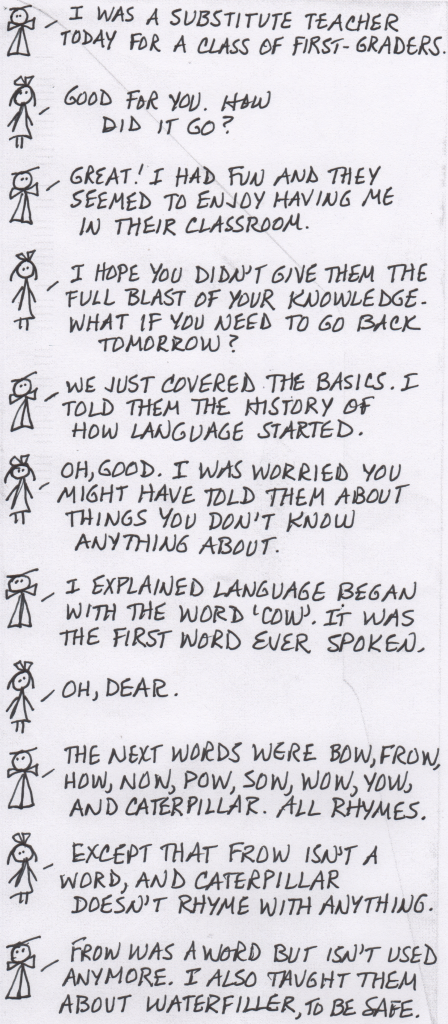 I WAS A SUBSTITUTE TEACHER
TODAY FOR A CLASS OF FIRST-GRADERS.
GOOD FOR YOU. HOW
DID IT GO?
GREAT! I HAD FUN AND THEY
SEEMED TO ENJOY HAVING ME
IN THEIR CLASSROOM.
I HOPE YOU DIDN'T GIVE THEM THE
FULL BLAST OF YOUR KNOWLEDGE-
WHAT IF YOU NEED TO GO BACK
TOMORROW?
WE JUST COVERED THE BASICS. I
TOLD THEM THE HISTORY OF
HOW LANGUAGE STARTED.
OH, GOOD. I WAS WORRIED YOU
MIGHT HAVE TOLD THEM ABOUT
THINGS YOU DON'T KNOW
ANYTHING ABOUT.
I EXPLAINED LANGUAGE BEGAN
WITH THE WORD 'COW'. IT WAS
THE FIRST WORD EVER SPOKEN.
OH, DEAR.
THE NEXT WORDS WERE BOW, FROW,
HOW, NOW, POW, SOW, WOW, YOW,
AND CATERPILLAR. ALL RHYMES.
EXCEPT THAT FROW ISN'T A
WORD, AND CATERPILLAR
DOESN'T RHYME WITH ANYTHING.
FROW WAS A WORD BUT ISN'T USED
ANYMORE. I ALSO TAUGHT THEM
ABOUT WATERFILLER, TO BE SAFE.